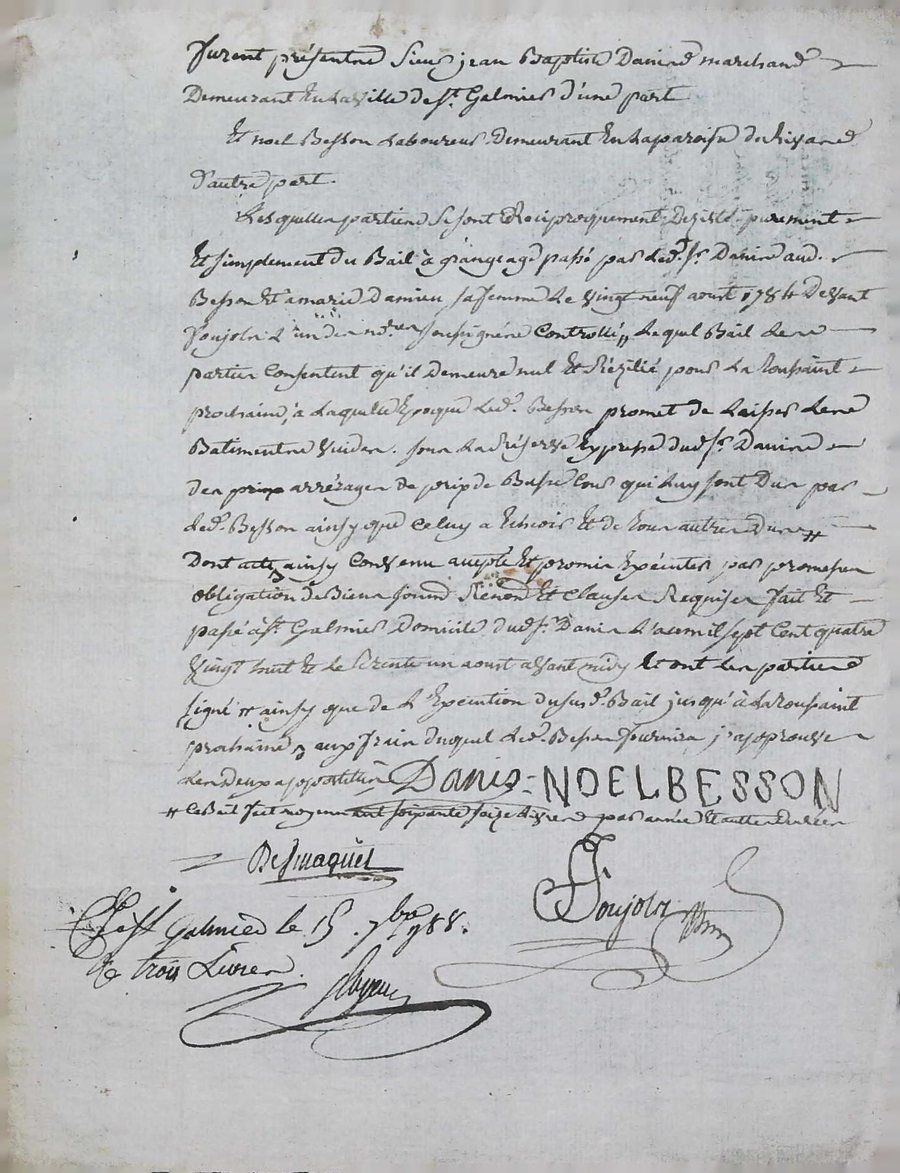 furent présentns Sieur jean Baptiste Danine marchand
Demeurant En La Ville de St. Galmier d'une part
Et noel Besson Laboureur Demeurant En La paroisse de
d'autre part.
Lesquelles partiens Se sont Reciproquement Dezisté purement
Et simplement du Bail à grangeage passé par led. Sr. Danine aud.
Besson Et a marie Damien sa femme Le vingt neuf aoust 1784 Devant
Poujolr L'un des nores soussignéns Controllé // Lequel Bail Lesn
partien Consentent qu'il demeure nul Et Rézilié pour La toussaint
prochaine, à Laquelle Epoque Led. Besson promet de Laisser Lesn
Batimentns Vuiden. sous La Réserve Expresse dud. Sr. Danine
den arrérages de prix de Bail qui Luy sont Dus par
Led. Besson ainsy que Celuy a Echeoir Et de tous autres dus //
Dont acte, ainsy Convenu accepté Et promis Exécuter par promesses
obligation de Biens soumis Renon. Et Clauses Requises fait Et
passé à St. Galmier Domicile dud. Sr. Danis L'an mil sept Cent quatre
Vingt huit Et le trente un aoust avant midy Et ont Les partiens
signé // ainsy que de L'Exécution du susd. Bail jusqu'à La toussaint
prochaine, aux frais duquel Led. Besson fournira j'approuve
Les deux apostilles Danis NOEL BESSON
// Le Bail fait moyennant soixante seize Livres par année Et autres
Desmaquet
Poujolr
Cé à St Galmier le 15 7bre 1788.
Re trois Livres